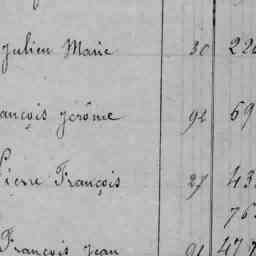 Julien Marie 30 22
ançois Jérôme 92 69
Pierre François 27 43
76
François Jean 91 477